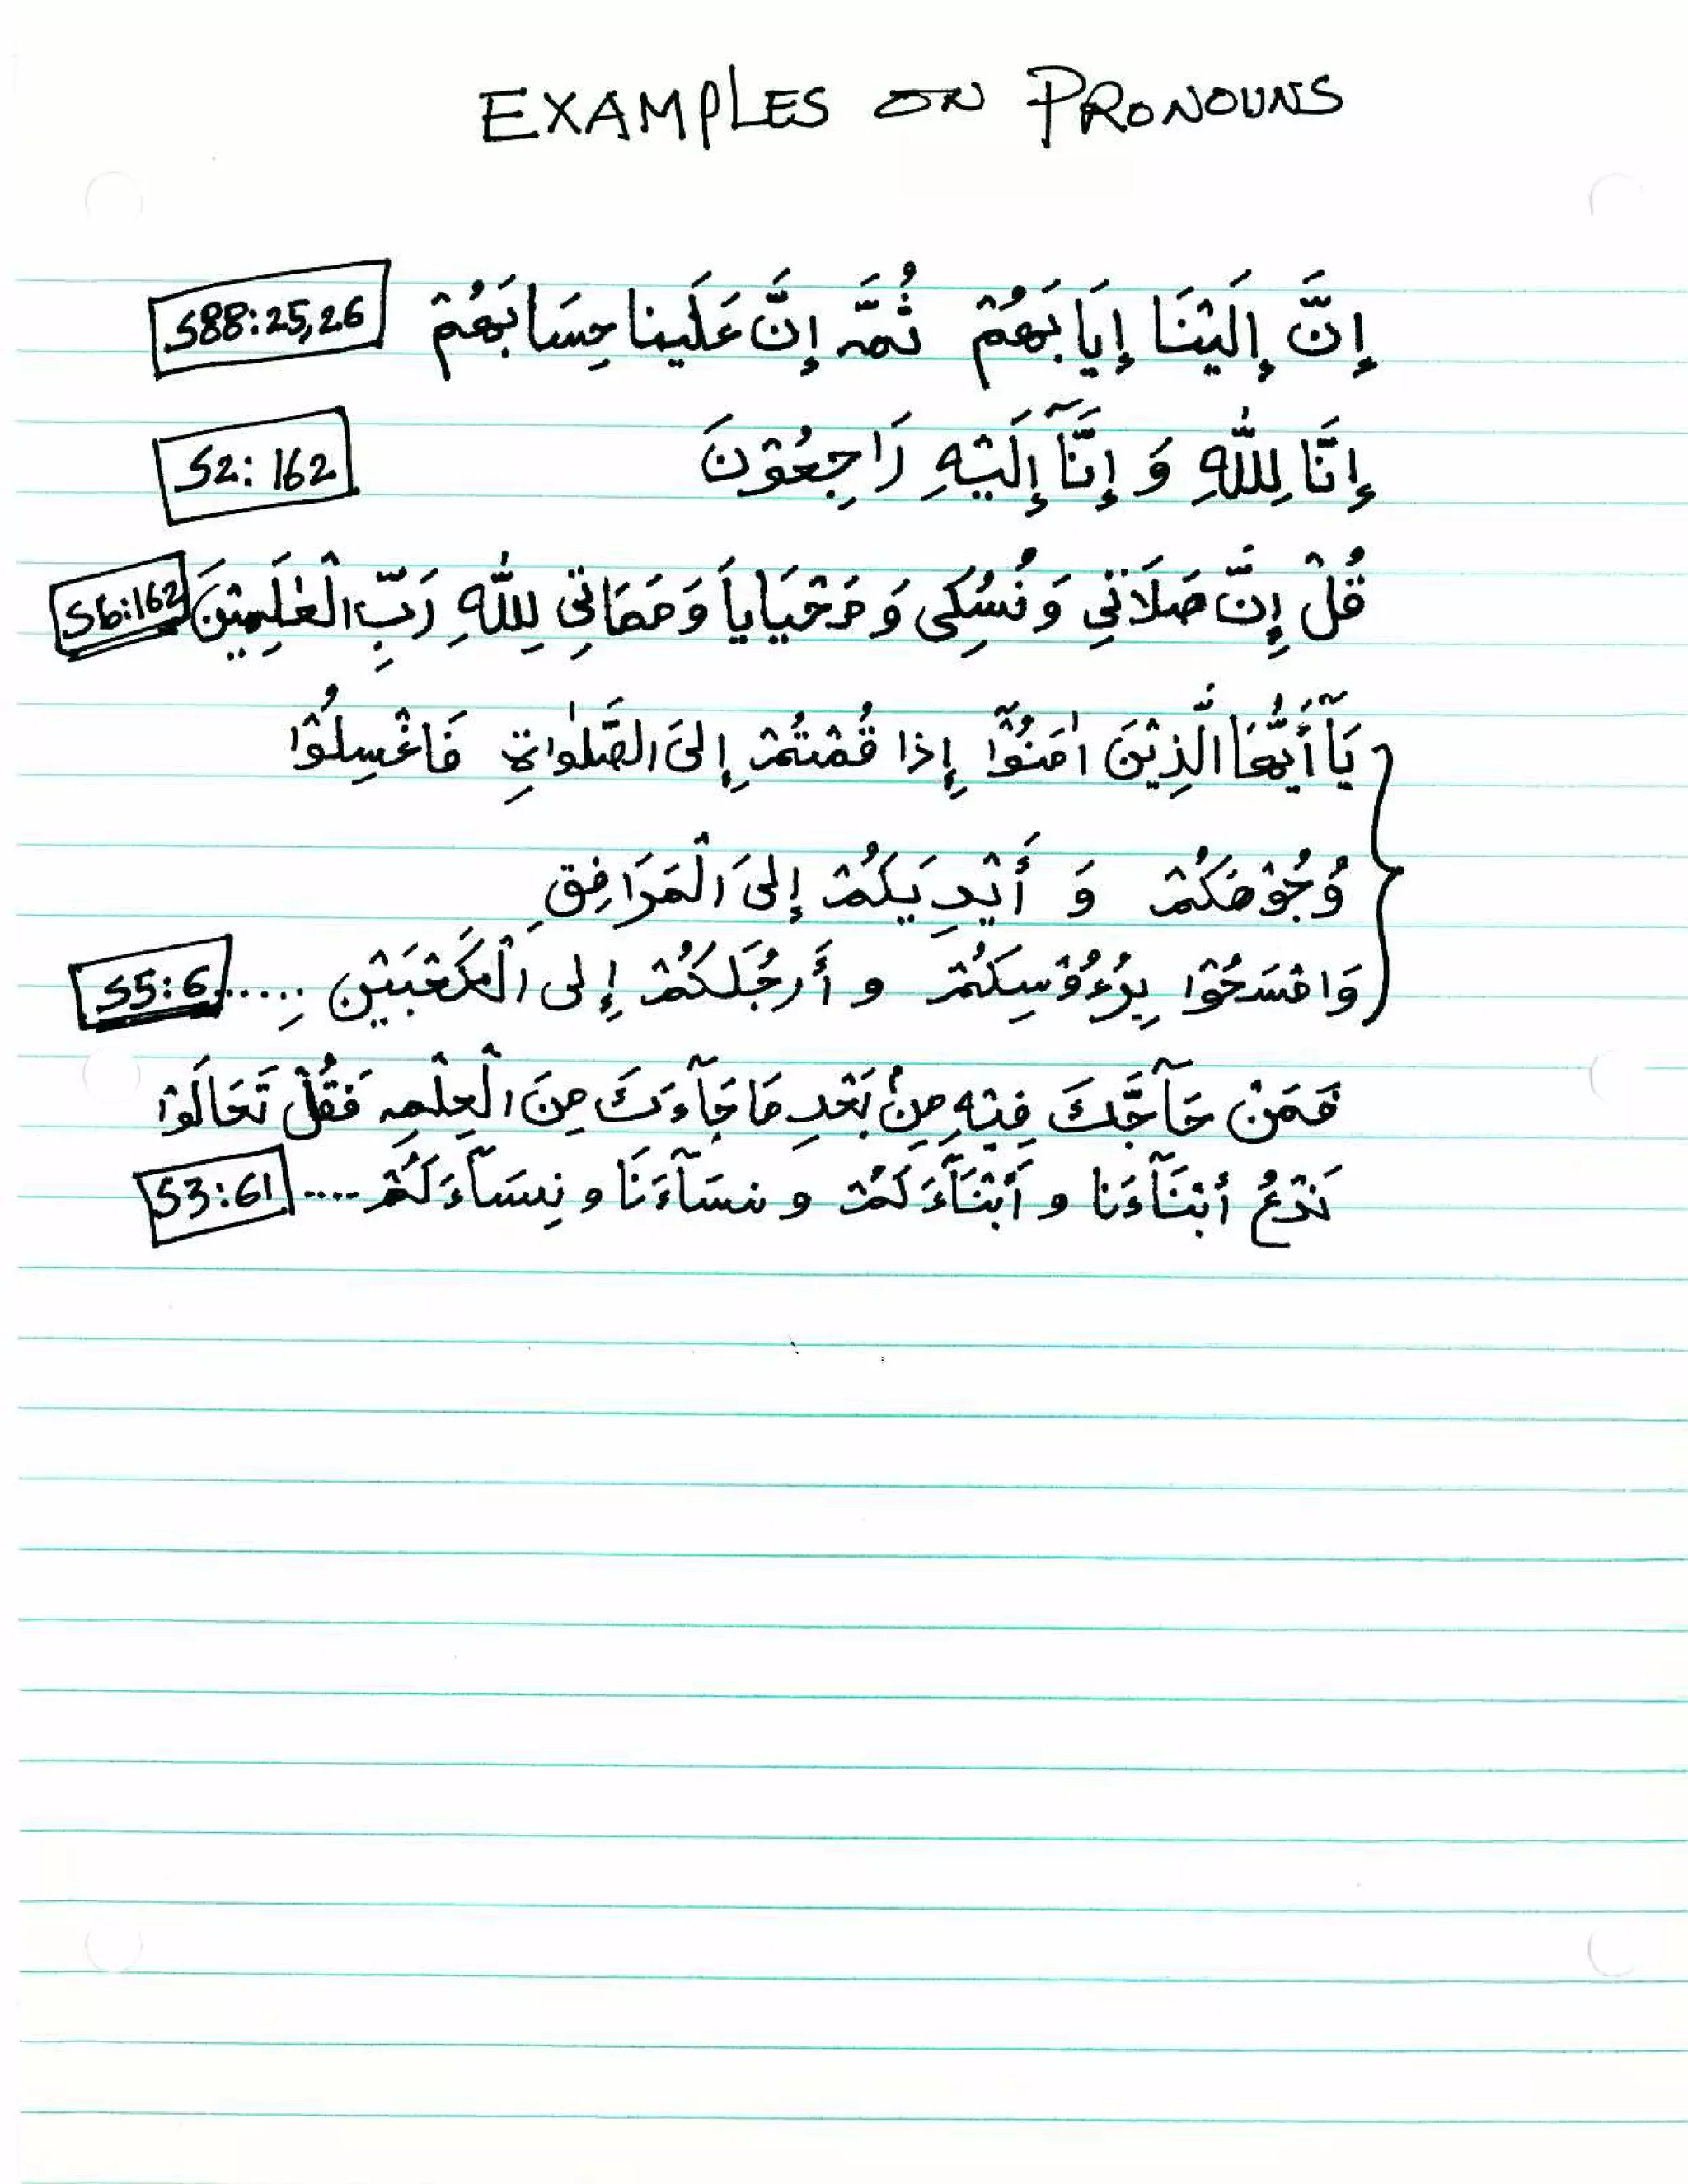 EXAMPLES ON PRONOUNS
إِنَّ إِلَيْنَا إِيَابَهُمْ ثُمَّ إِنَّ عَلَينا حِسَابَهُمْ S88:25,26
إِنَّا لِلّٰهِ وَ إِنَّآ إِلَيْهِ رَاجِعُوْنَ S2:162
قُلْ إِنَّ صَلَاتِي وَ نُسُكِى وَ مَحْيَاياَ وَ مَمَاتِي لِلّٰهِ رَبِّ الْعٰلَمِيْنَ S6:162
يَآ أَيُّهَا الَّذِيْنَ اٰمَنُوْآ إِذا قُمْتُمْ إِلىَ الصَّلٰواةِ فَاغْسِلُوْا
وُجُوْهَكُمْ وَ أَيْدِيَكُمْ إِلىَ الْمَرَافِقِ
وَامْسَحُوْا بِرُءُوْسِكُمْ و أَرجُلَكُمْ إِلى الْكَعْبَيْنِ ...... S5:6
فَمَنْ حَآجَّكَ فِيْهِ مِنْ بَعْدِ مَا جَآءَكَ مِنَ الْعِلْمِ فَقُلْ تَعَالَوْا
نَدْعُ أَبْنَآءَنا و أَبْنَآءَكُمْ و نسَآءَنَا و نِسَآءَكُمْ .... S3:61